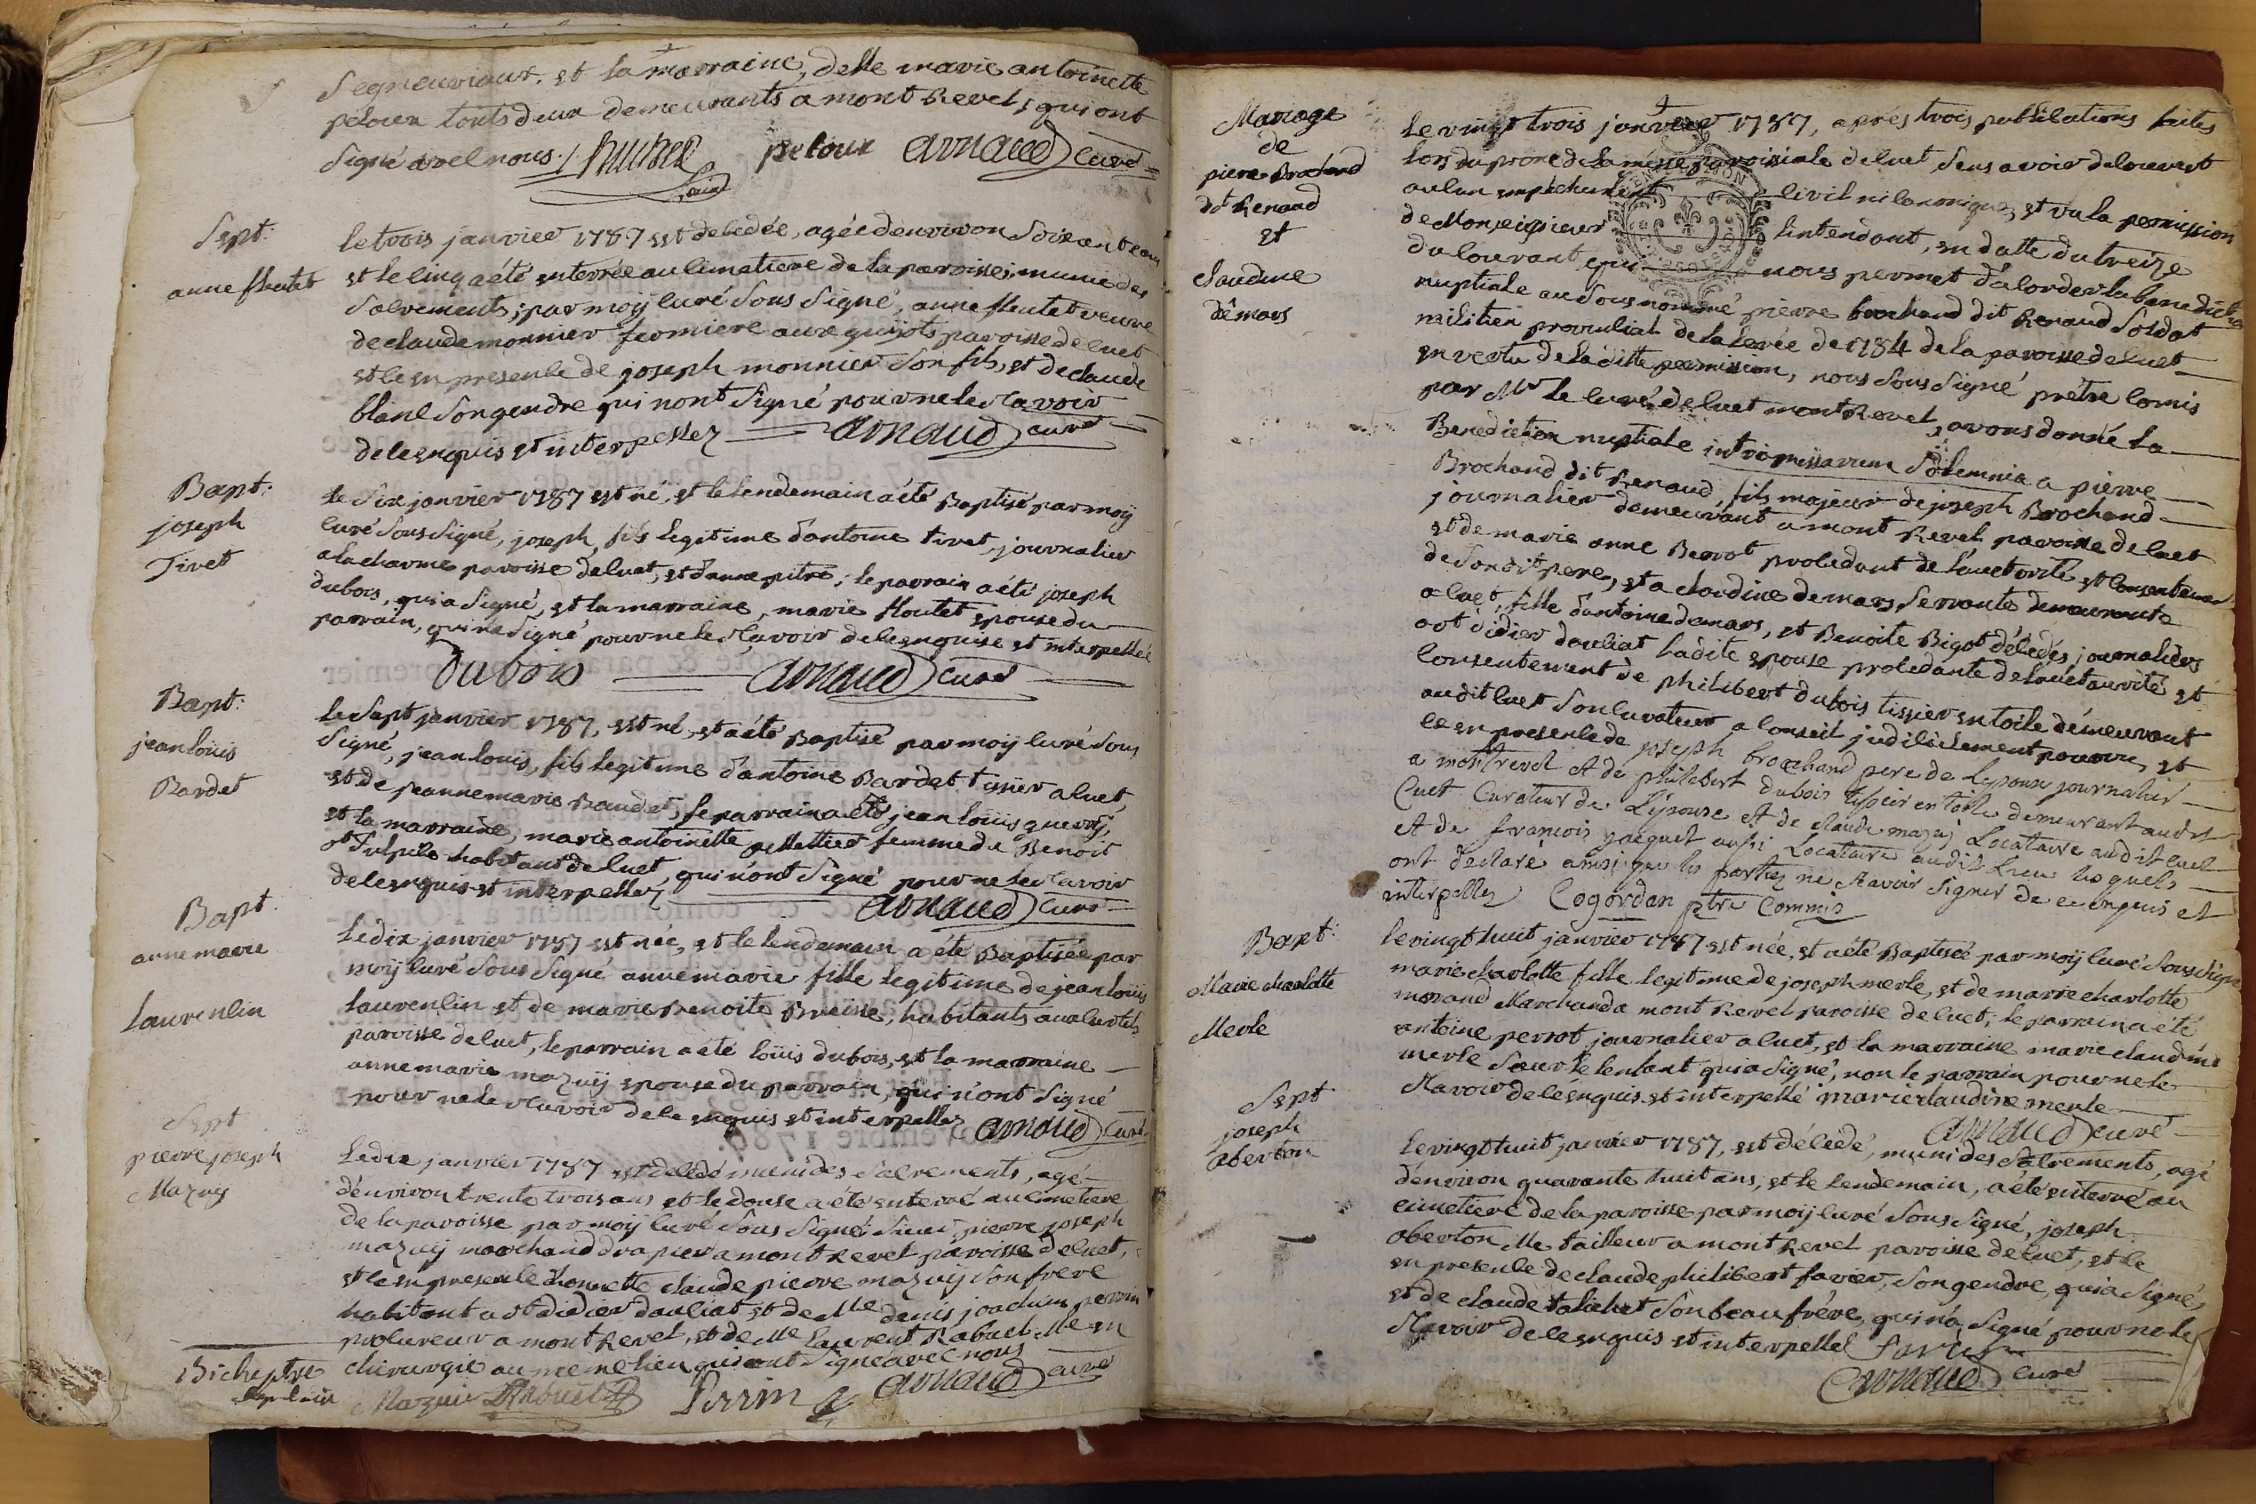 Segneuriaux. et la marraine, delle marie antoinette
peloux touts deux demeurants a mont Revel, qui ont
signé avec nous./. peloux arnaud curé
Sept:
anne flutet
le trois janvier 1787 est decedée, agée d'environ soixante ans
et le cinq a été enterrée au cimetiere de la paroisse, munie des
sacrements, par moÿ curé sous signé, anne flutet veuve
de claude monnier fermiere aux guijots paroisse de cuet
et ce en presence de joseph monnier son fils, et de claude
blanc son gendre qui n'ont signé pour ne le sçavoir
de ce enquis et interpellez arnaud curé
Bapt:
joseph
Tivet
le six janvier 1787 est né, et le lendemain a été Baptisé par moÿ
curé sous signé, joseph, fils legitime d'antoine tivet, journalier
a la charme paroisse de cuet, et d'anne pitre; le parrain a été joseph
dubois, qui a signé, et la marraine, marie floutet epouse du
parrain, qui n'a signé pour ne le sçavoir de ce enquise et interpellée
Dubois arnaud curé
Bapt:
jean loüis
Bardet
le sept janvier 1787, est né, et a été Baptisé par moÿ curé sous
signé, jean louis, fils legitime d'antoine Bardet tissier a cuet,
et de jeanne marie Baudet, le parrain a été jean loüis guerrÿ,
et la marraine, marie antoinette pelletier femme de Benoit
st Sulpice habitant de cuet, qui n'ont signé pour ne le sçavoir
de ce enquis et interpellez arnaud curé
Bapt:
anne marie
laurencin
le dix janvier 1787 est née, et le lendemain a été Baptisée par
moÿ curé sous signé anne marie fille legitime de jean loüis
laurencin et de marie benoite Breüsse, habitants aux curtils
paroisse de cuet, le parrain a été loüis dubois, et la marraine
anne marie mazuÿ epouse du parrain, qui n'ont signé
pour ne le sçavoir de ce enquis et interpellez arnaud curé
Sept
pierre joseph
Mazuy
le dix janvier 1787 est decedé muni des sacrements, agé
d'environ trente trois ans et le douse a été enterré au cimetiere
de la paroisse par moÿ curé sous signé, sieur pierre joseph
mazuÿ marchand drapier a mont Revel paroisse de cuet,
et ce en presence d'honnette claude pierre mazuÿ son frere
habitant a st didier d'auciat et de Me denis joachim perrin
procureur a mont Revel, et de Me laurent Rabuel Me en
chirurgie au meme lieu qui ont signé avec nous
Bicheptre Mazuie Rabuel Perrin arnaud curé
Mariage
de
pierre Brochand
dt Renaud
et
claudine
démars
le vingt trois janvier 1787, aprés trois publications faites
lors du prone de la messe paroissiale de cuet, sans avoir decouvert
aucun empéchement civil ni canonique, et vu la permission
de Monseigneur l'intendant, en datte du treize
du courant qui nous permet d'accorder la benediction
nuptiale au sous nommé pierre brochand dit Renaud soldat
militien provincial de la levée de 1784 de la paroisse de cuet
en vertu de la ditte permission, nous sous signé prétre comis
par Mr le curé de cuet mont Revel, avons donné la
Benediction nuptiale intra missarum solemnia a pierre
Brochand dit Renaud, fils majeur de joseph Brochand
journalier demeurant a mont Revel paroisse de cuet
et de marie anne Berrot procedant de l'auctorité et consentement
de son dit pere, et a claudine demars, servante demeurante
a cuet, fille d'antoine demars, et Benoite Bigot décedés, journaliers
a st didier d'auciat ladite epouse procedante de l'auctaurité et
consentement de philibert dubois tissier en toile démeurant
audit cuet son curateur a conseil judiciellement pourvu, et
ce en presence de joseph brochand pere de l'epoux journalier
a montrevel et de philibert dubois tissier en toile demeurant audit
Cuet Curateur de l'épouse et de claude mazuj Locataire audit cuet
et de francois jacquet aussi Locataire audit lieu lesquels
ont declaré ainsi que les parties ne sçavoir signer de ce enquis et
interpellez Cogordan ptre Commis
Bapt:
Marie charlotte
Merle
le vingt huit janvier 1787 est née, et a été Baptisée par moÿ curé sous signé
marie charlotte fille legitime de joseph merle, et de marie charlotte
morand Marchand a mont Revel paroisse de cuet; le parrain a été
antoine perrot journalier a cuet, et la marraine marie claudine
merle sœur de l'enfant qui a signé, non le parrain pour ne le
sçavoir de cé enquis et interpellé marie claudine merle
arnaud curé
Sept
joseph
oberton
le vingt huit janvier 1787, est décedé, muni des sacrements, agé
d'environ quarante huit ans, et le lendemain, a été enterré au
cimetiere de la paroisse par moÿ curé sous signé, joseph
oberton Me tailleur a mont Revel paroisse de cuet, et ce
en presence de claude philibert favier, son gendre, qui a signé,
et de claude talichet son beau frére, qui n'a signé pour ne le
sçavoir de ce enquis et interpellé favier
arnaud curé